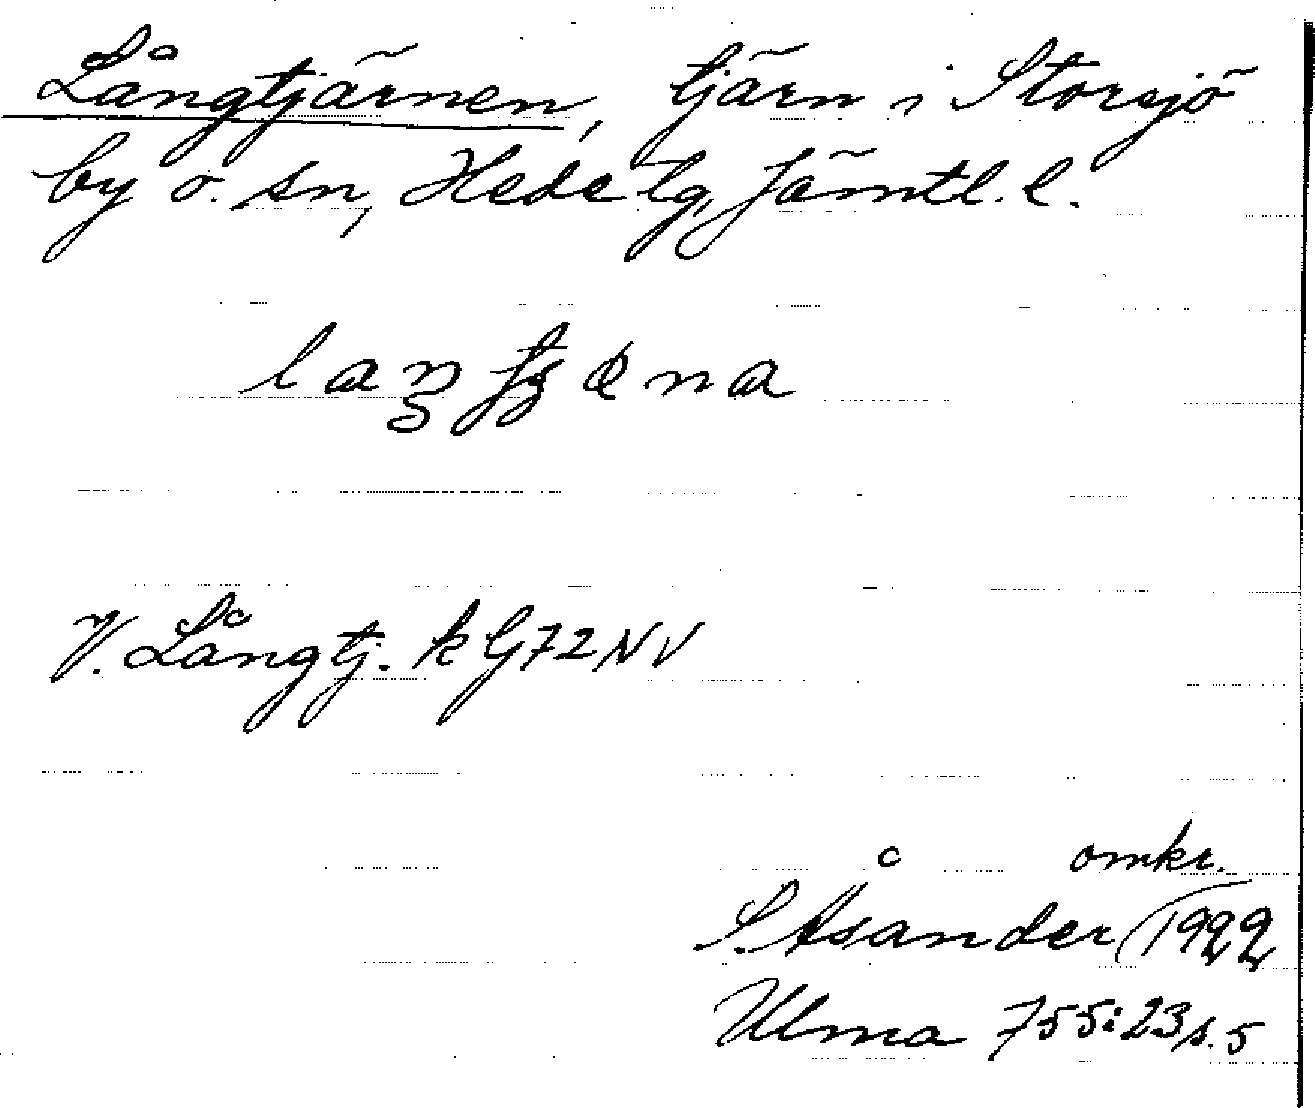 Långtjärnen, tjärn i Storsjö
by o. sn, Hede tg, Jämtl. l.
V. Långtj. k G72NV
omkr.
S. Åsander 1922
Ulma 755:23 s. 5